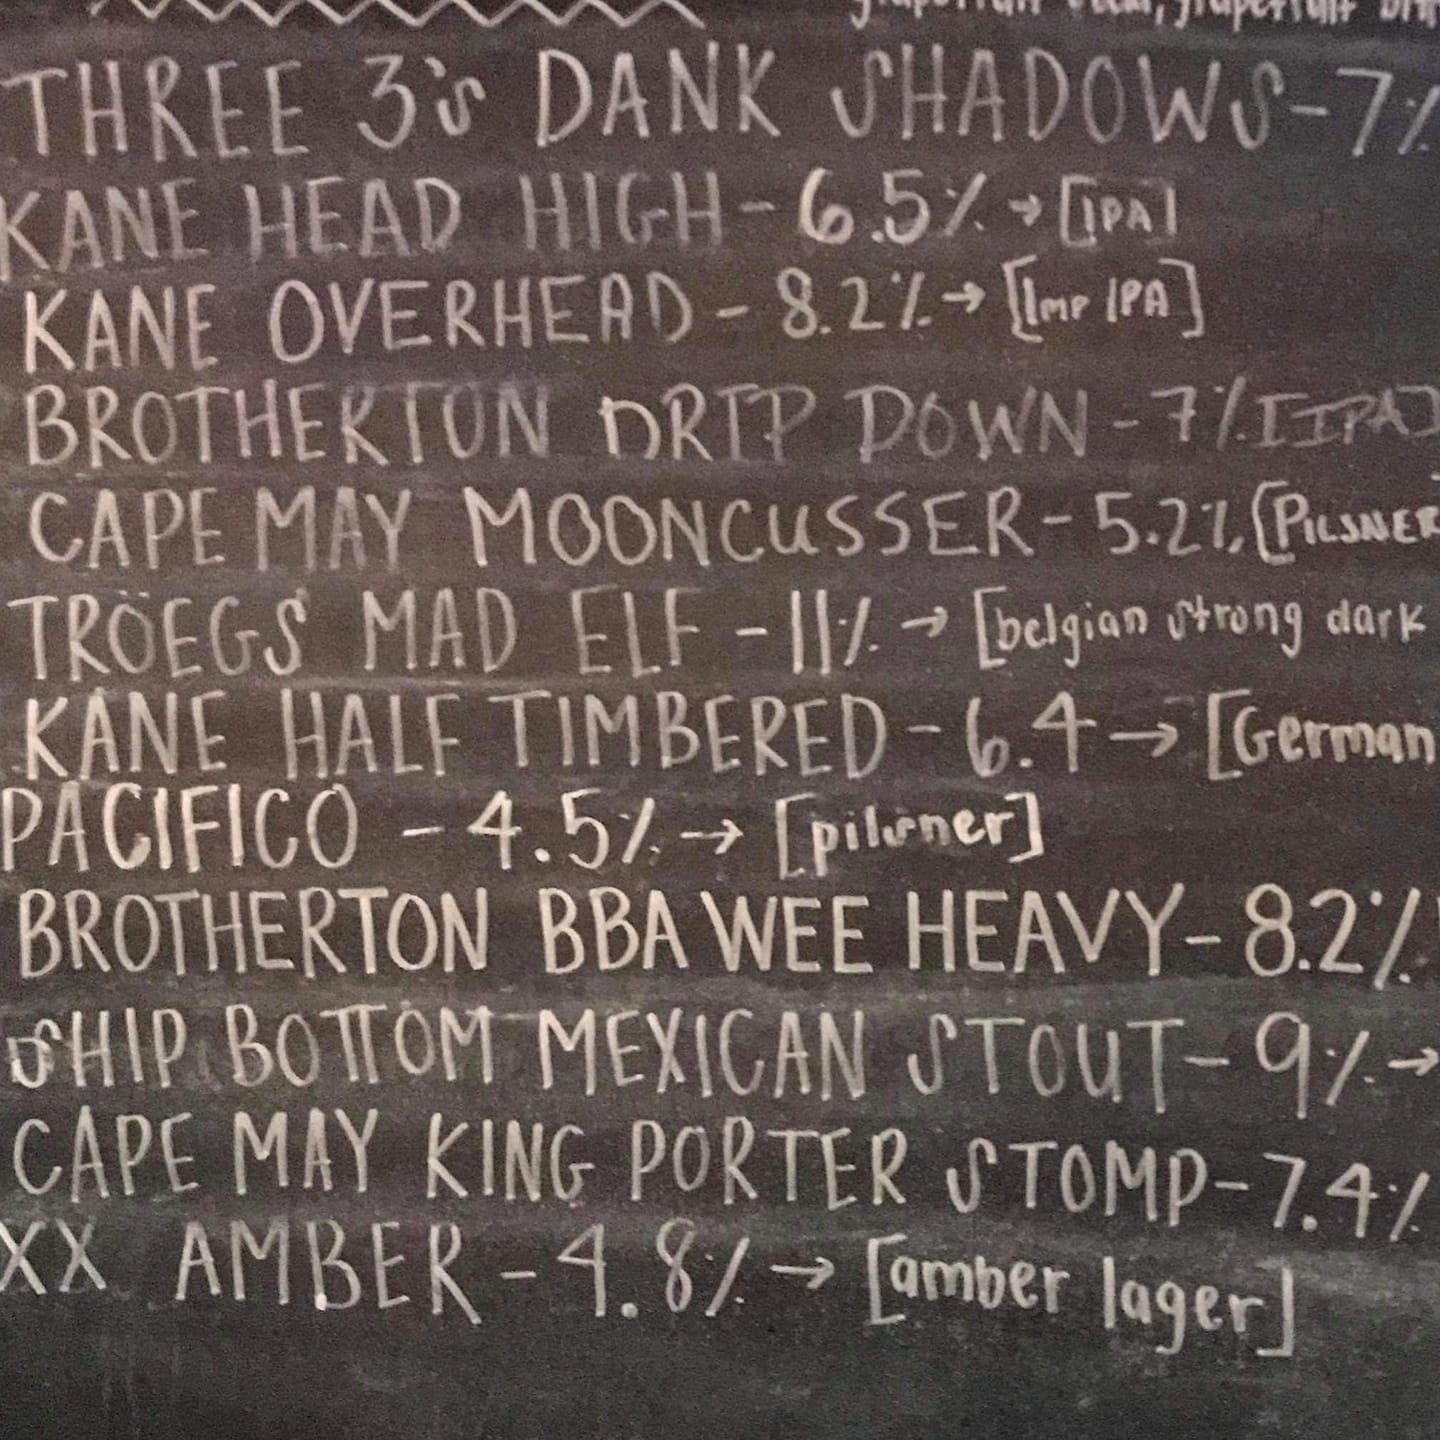 THREE 3's DANK SHADOWS-7%
KANE HEAD HIGH - 6.5% → [IPA]
KANE OVERHEAD - 8.2% → [Imp IPA]
BROTHERTON DRIP DOWN - 7% [IPA]
CAPE MAY MOONCUSSER - 5.2% [PILSNER
TRÖEGS MAD ELF - 11% → [belgian strong dark
KANE HALF TIMBERED - 6.4 → [German
PACIFICO - 4.5% → [pilsner]
BROTHERTON BBA WEE HEAVY - 8.2%
SHIP BOTTOM MEXICAN STOUT - 9% →
CAPE MAY KING PORTER STOMP - 7.4%
XX AMBER - 4.8% → [amber lager]